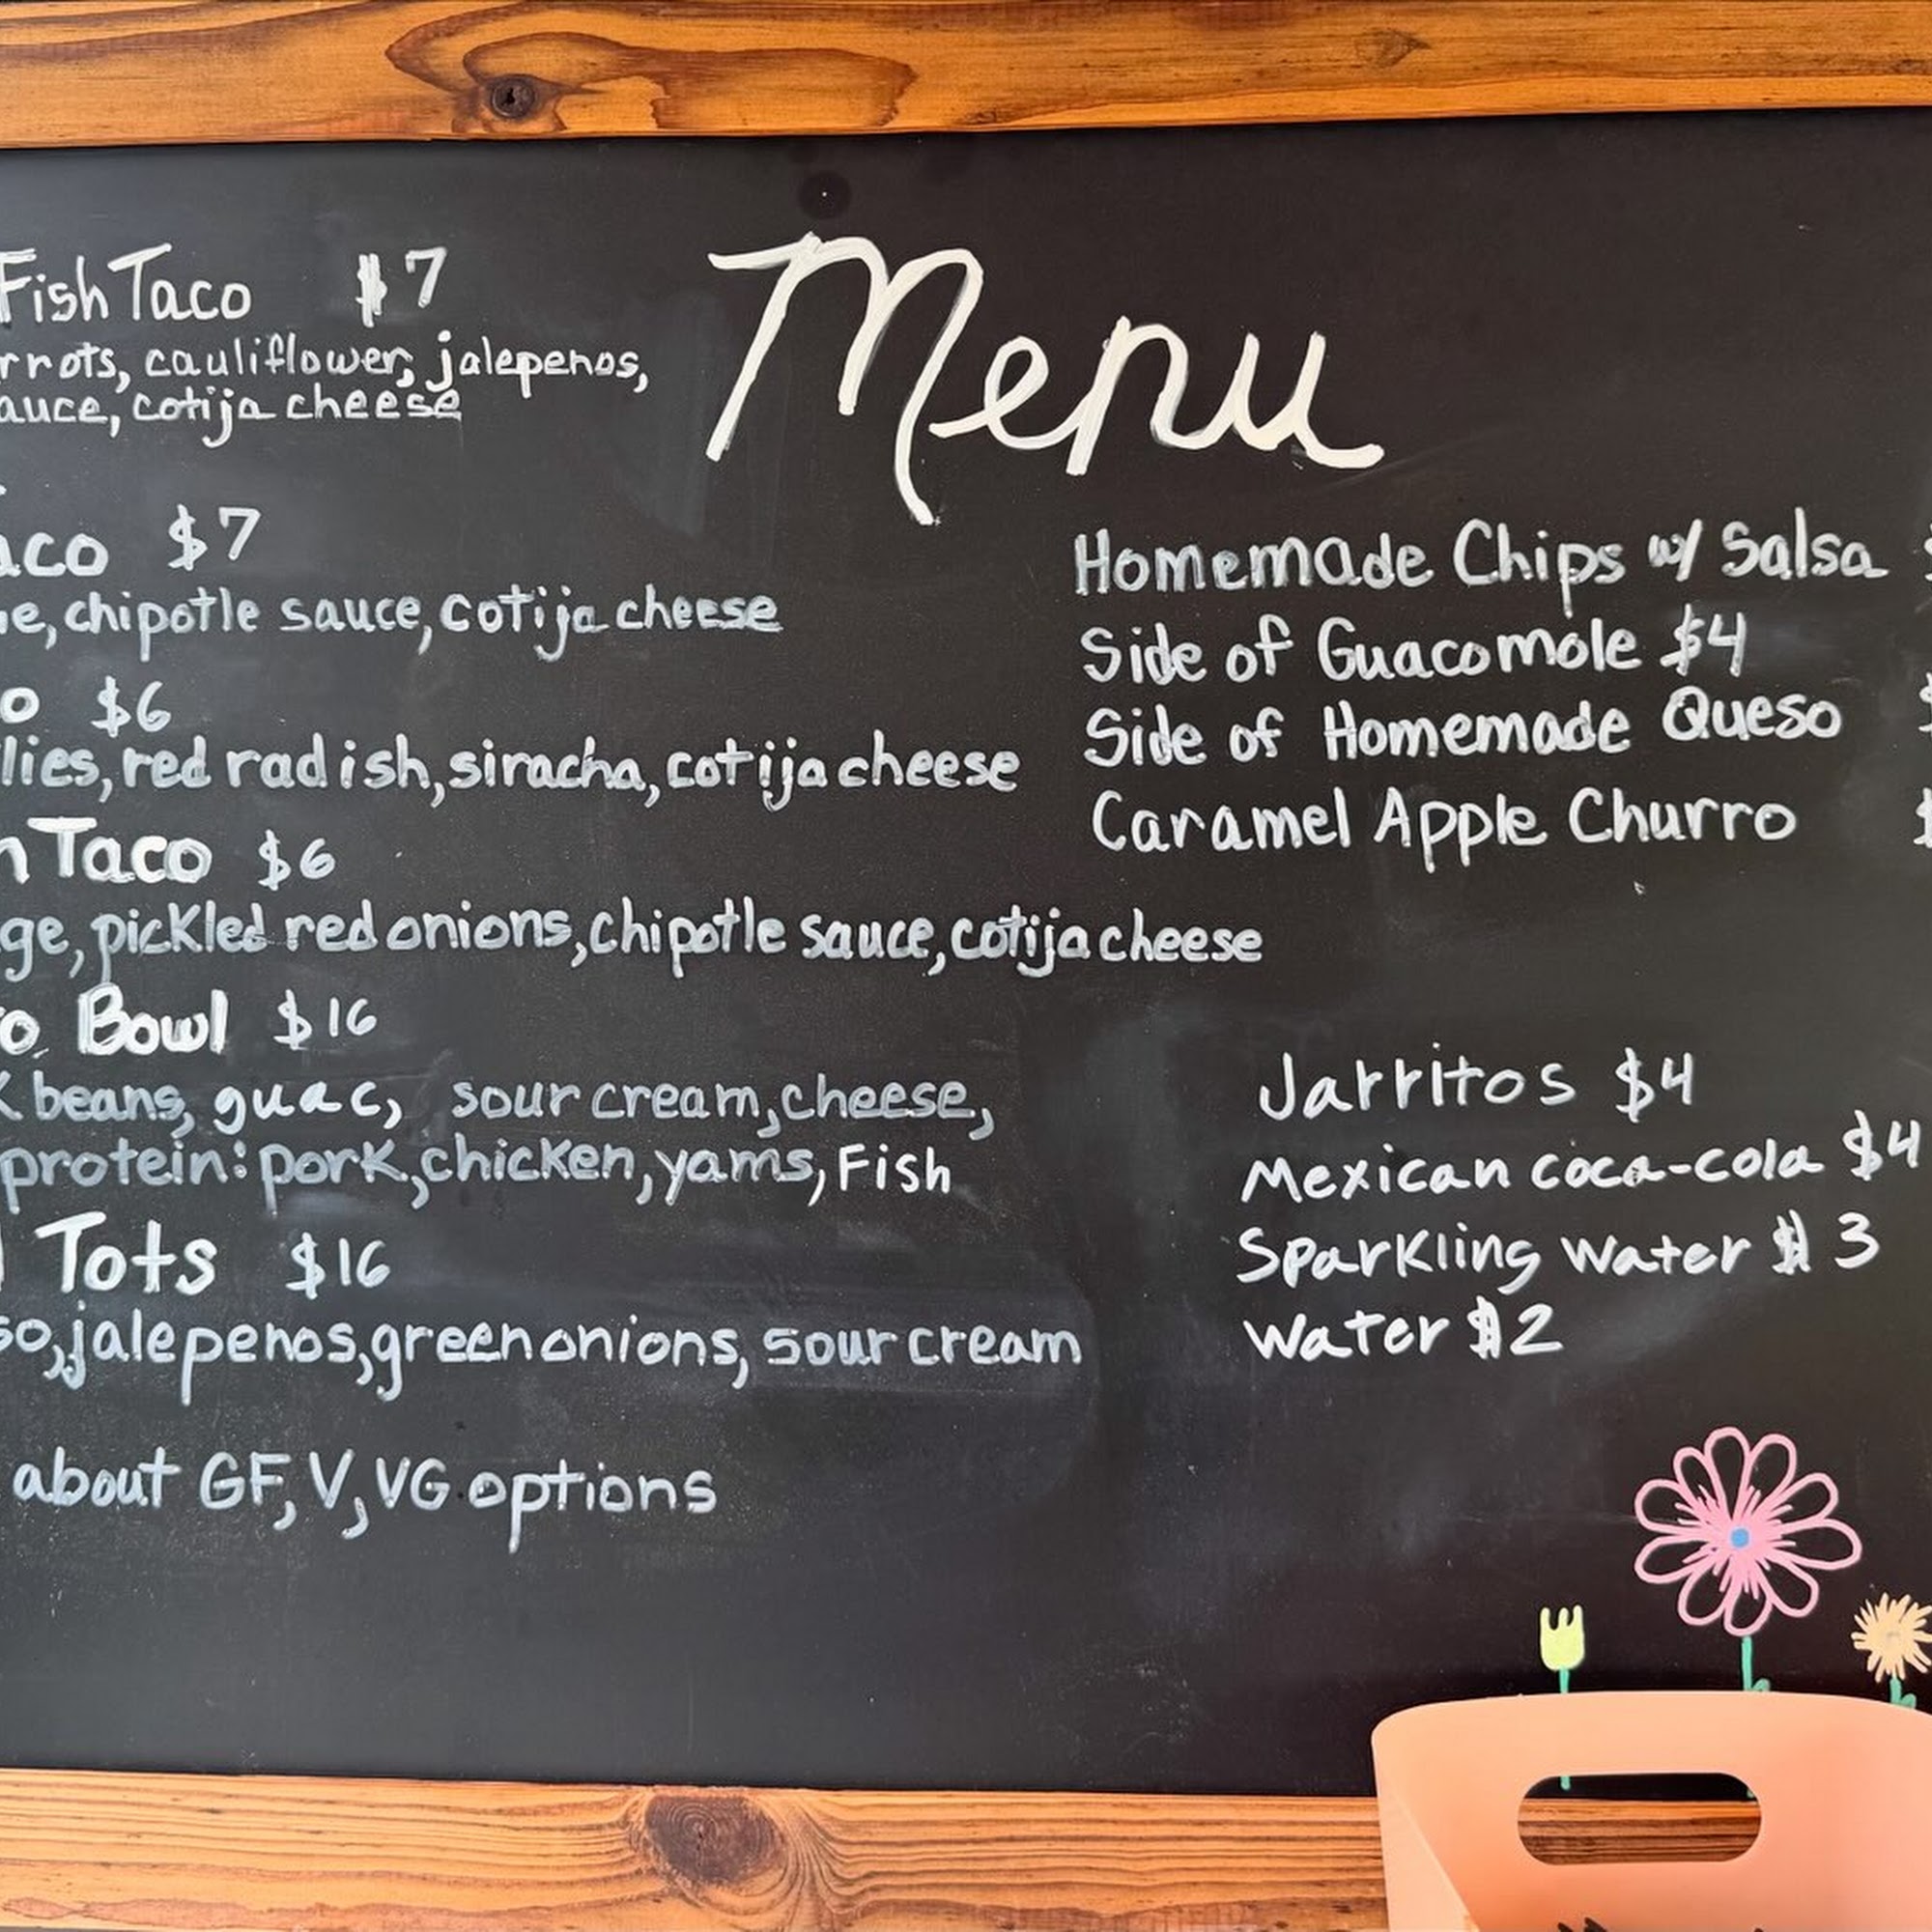 Menu
Fish Taco $7
rrots, cauliflower, jalepenos,
auce, cotija cheese
aco $7
e, chipotle sauce, cotija cheese
o $6
lies, red radish, siracha, cotija cheese
n Taco $6
ge, pickled red onions, chipotle sauce, cotija cheese
o Bowl $16
k beans, guac, sour cream, cheese,
protein: pork, chicken, yams, Fish
Tots $16
so, jalepenos, green onions, sour cream
about GF, V, VG options
Homemade Chips w/ Salsa $
Side of Guacomole $4
Side of Homemade Queso $
Caramel Apple Churro $
Jarritos $4
Mexican coca-cola $4
Sparkling water $3
water $2